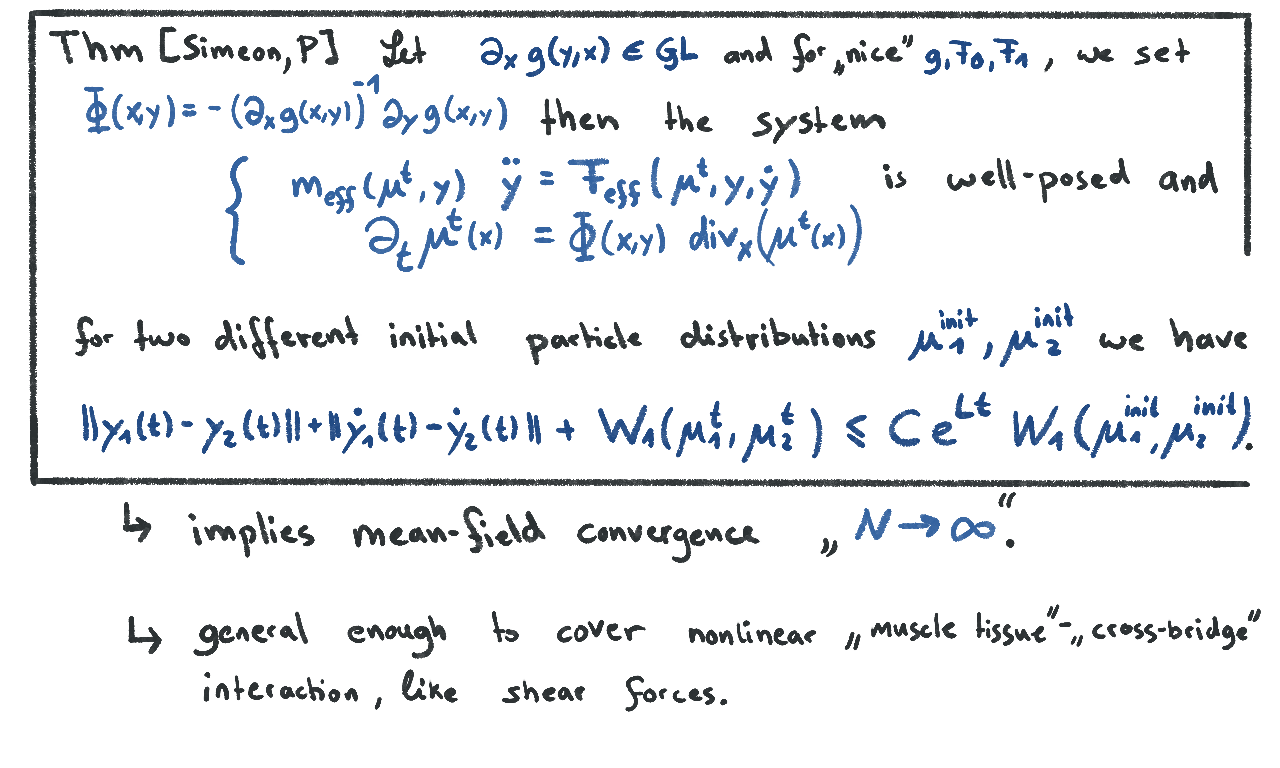 Thm [Simeon, P] Let ∂ₓ g(y,x) ∈ GL and for „nice" g, F₀, F₁, we set
Φ(x,y) = - (∂ₓg(x,y))⁻¹ ∂ᵧ g(x,y) then the system
{ m_eff(μᵗ, y) ÿ = F_eff(μᵗ, y, ẏ) is well-posed and
∂ₜ μᵗ(x) = Φ(x,y) divₓ(μᵗ(x))
for two different initial particle distributions μ₁^init, μ₂^init we have
||y₁(t) - y₂(t)|| + ||ẏ₁(t) - ẏ₂(t)|| + W₁(μ₁ᵗ, μ₂ᵗ) ≤ C e^{Lt} W₁(μ₁^init, μ₂^init).
↳ implies mean-field convergence „N → ∞".
↳ general enough to cover nonlinear „muscle tissue"-„cross-bridge"
interaction, like shear forces.